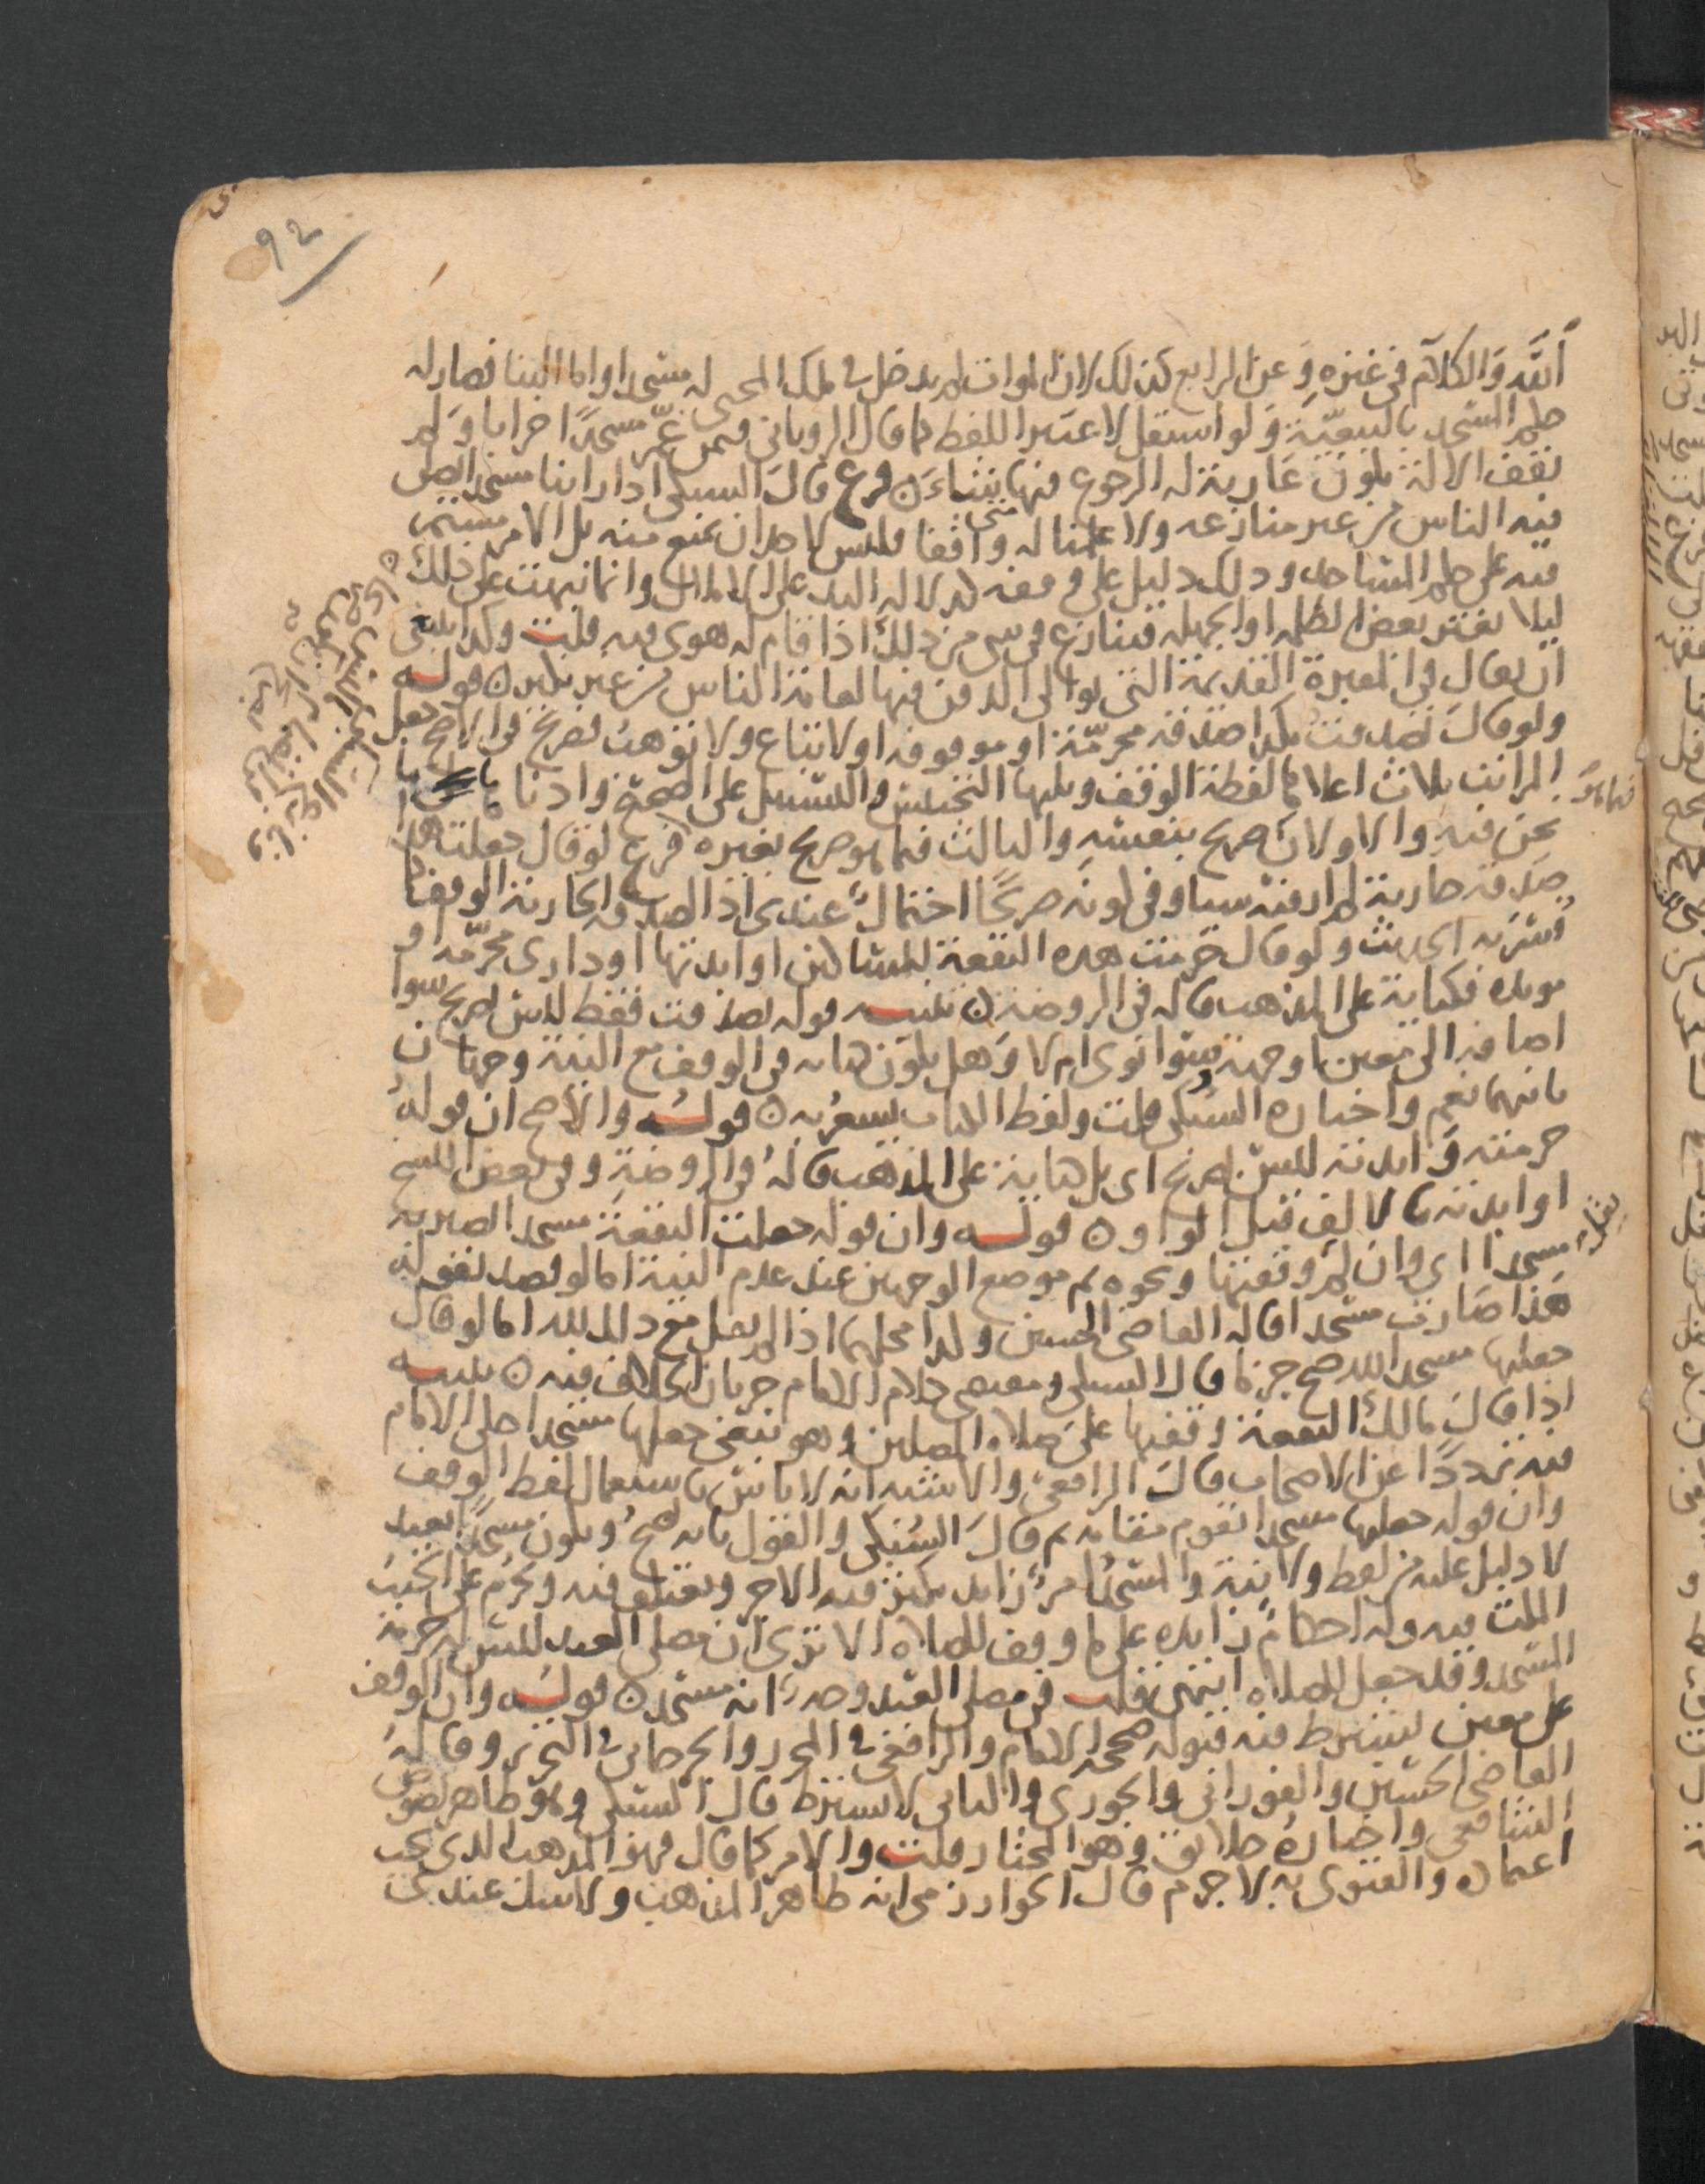 ٩٢
أنه والكلام في غيره وعن الرابع كذلك لان الموات لم يدخل في ملك المحيي له مسجدا واما البنا فصار له
حكم المسجد بالتبعية ولو استقل لاعتبر اللفظ كما قال الروياني فيمن عمّر مسجدًا خرابا ولم
يقف الالة يكون عارية له الرجوع فيها متى شاء ن فرع قال السبكي اذا راينا مسجدا يصلى
فيه الناس من غير منازعه ولا علمنا له واقفا فليس لاحد ان يمنع منه بل الامر مستمر
فيه على حكم المساجد وذلك دليل على وقفه كدلالة اليد على الاملاك وانما نبهت على ذلك
ليلا يغتر بعض الظلمه او الجهله فينازع في شي من ذلك اذا قام له هوى فيه قلت وكذا ينبغي
ان يقال في المقبرة القديمة التي توالى الدفن فيها لعامة الناس من غير نكير ن قوله
ولو قال تصدقت بكذا صدقه محرمّة او موقوفه او لا تباع ولا توهب فصريح في الاصح جعل
المراتب ثلاث اعلاها لفظة الوقف ويليها التحبيس والتسبيل على الصحيح وادنا ما
نحن فيه والاولان صريح بنفسه والثالث فيما هو صريح بغيره فرع لو قال جعلت هذا
صدقه جارية لم ار فيه شيا وفي كونه صريحًا احتمال عندي اذ الصدقه الجارية الوقف كما
فسّر به الحديث ولو قال حرمت هذه البقعة للمساكين او ابدتها او داري محرّمه او
موبده فكناية على المذهب قاله في الروضة ن تنبيه قوله تصدقت فقط ليس بصريح سوا
اضافه الى معين او جهة سوا نوى ام لا وهل يكون كنايه في الوقف مع النية وجهان
ثانيهما نعم واختاره السبكي قلت ولفظ الكتاب يشعر به ن قوله والأصح ان قوله
حرمته وابدته ليس بصريح اى بل كناية على المذهب قاله في الروضة وفي بعض النسخ
او ابدته بالالف قبل الواو ن قوله وان قوله جعلت البقعة مسجدا تصير به
مسجدا اي وان لم يقل وقفتها ونحوه ثم موضع الوجهين عند عدم النية اما لو قصد بقوله
هذا صارت مسجدا قاله القاضي الحسين وكذا محلهما اذا لم يقل مع ذلك لله اما لو قال
جعلتها مسجدا لله صح جزما قال السبكي ومقتضى كلام الامام جريان الخلاف فيه ن تنبيه
اذا قال مالك البقعة وقفتها على صلاه المصلين وهو يبغي جعلها مسجدا حكى الامام
فيه ترددًا عن الاصحاب قال الرافعي والاشبه انه لا باس باستعمال لفظ الوقف
وان قوله جعلتها مسجدا تقوم مقامه ثم قال السبكي والقول بانه يصح ويكون مسجدًا بعيد
لا دليل عليه من لفظ ولا نية والمسجد امر زايد يكثر فيه الاجر ويعتكف فيه ويحرم على الجنب
المكث فيه وله احكام زايده على ما وقف للصلاه الا ترى ان مصلى العيد ليس له حرمة
المسجد وقد جعل للصلاه انتهى قلت في مصلى العيد وجه انه مسجد ن قوله وان الوقف
على معين يشترط فيه قبوله صححه الامام والرافعي في المحرر والجرجاني في التحرير وقاله
القاضي الحسين والفوراني والجوري والثاني لا يشترط قال السبكي وهو ظاهر نصوص
الشافعي واختاره خلايق وهو المختار قلت والامر كما قال فهو المذهب الذي يجب
اعتماده والفتوى به لا جرم قال الخوارزمي انه ظاهر المذهب ولا شك عندي